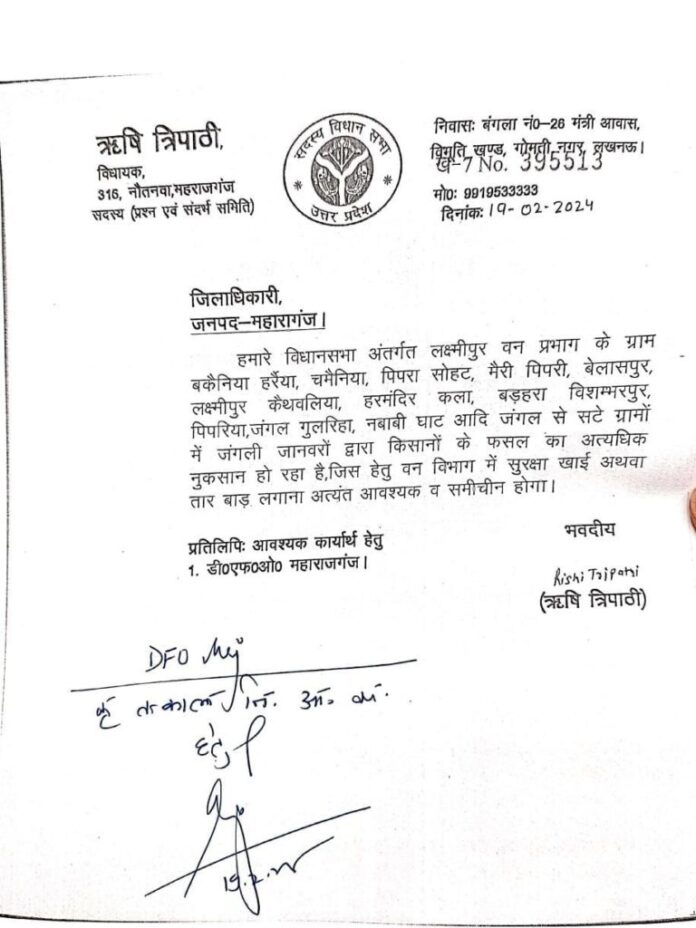 ऋषि त्रिपाठी,
विधायक,
316, नौतनवा,महराजगंज
सदस्य (प्रश्न एवं संदर्भ समिति)
सदस्य विधान सभा
उत्तर प्रदेश
निवासः बंगला नं0–26 मंत्री आवास,
विभूति खण्ड, गोमती नगर, लखनऊ।
ख-7 No. 395513
मो0: 9919533333
दिनांकः 19-02-2024
जिलाधिकारी,
जनपद–महारागंज।
हमारे विधानसभा अंतर्गत लक्ष्मीपुर वन प्रभाग के ग्राम
बकैनिया हर्रैया, चमैनिया, पिपरा सोहट, मैरी पिपरी, बेलासपुर,
लक्ष्मीपुर कैथवलिया, हरमंदिर कला, बड़हरा विशम्भरपुर,
पिपरिया,जंगल गुलरिहा, नबाबी घाट आदि जंगल से सटे ग्रामों
में जंगली जानवरों द्वारा किसानों के फसल का अत्यधिक
नुकसान हो रहा है,जिस हेतु वन विभाग में सुरक्षा खाई अथवा
तार बाड़ लगाना अत्यंत आवश्यक व समीचीन होगा।
भवदीय
प्रतिलिपिः आवश्यक कार्यार्थ हेतु
1. डी0एफ0ओ0 महाराजगंज।
Rishi Tripathi
(ऋषि त्रिपाठी)
DFO
तत्काल
हेतु